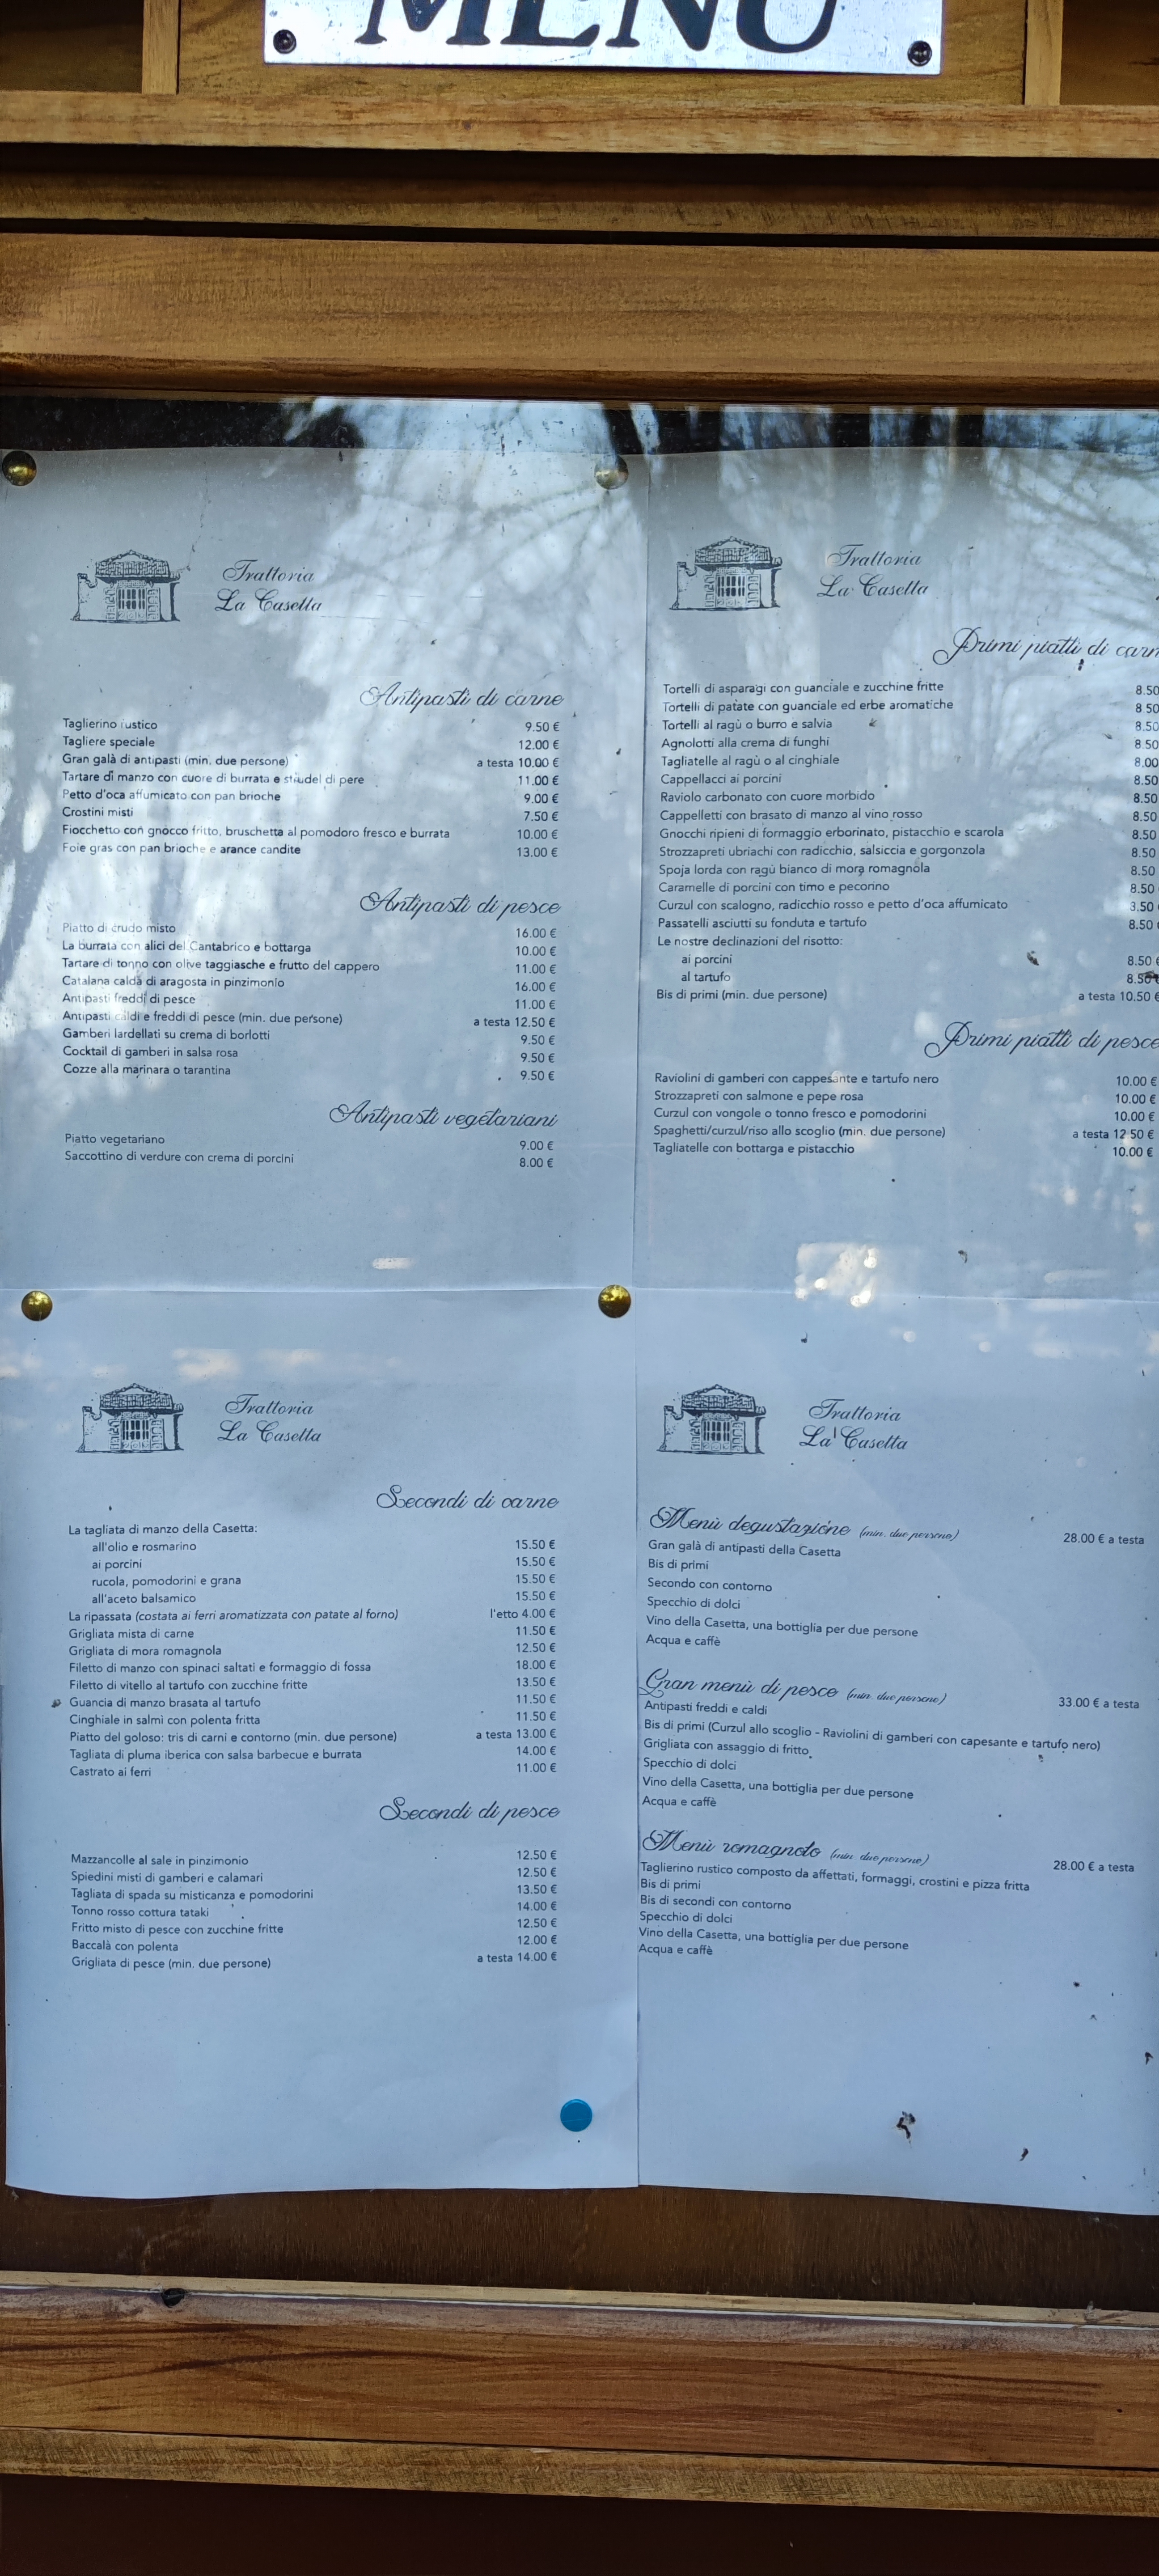 MENÙ
Trattoria
La Casetta
Antipasti di carne
Taglierino rustico 9.50 €
Tagliere speciale 12.00 €
Gran galà di antipasti (min. due persone) a testa 10.00 €
Tartare di manzo con cuore di burrata e strudel di pere 11.00 €
Petto d'oca affumicato con pan brioche 9.00 €
Crostini misti 7.50 €
Fiocchetto con gnocco fritto, bruschetta al pomodoro fresco e burrata 10.00 €
Foie gras con pan brioche e arance candite 13.00 €
Antipasti di pesce
Piatto di crudo misto 16.00 €
La burrata con alici del Cantabrico e bottarga 10.00 €
Tartare di tonno con olive taggiasche e frutto del cappero 11.00 €
Catalana calda di aragosta in pinzimonio 16.00 €
Antipasti freddi di pesce 11.00 €
Antipasti caldi e freddi di pesce (min. due persone) a testa 12.50 €
Gamberi lardellati su crema di borlotti 9.50 €
Cocktail di gamberi in salsa rosa 9.50 €
Cozze alla marinara o tarantina 9.50 €
Antipasti vegetariani
Piatto vegetariano 9.00 €
Saccottino di verdure con crema di porcini 8.00 €
Trattoria
La Casetta
Primi piatti di carn
Tortelli di asparagi con guanciale e zucchine fritte 8.50
Tortelli di patate con guanciale ed erbe aromatiche 8.50
Tortelli al ragù o burro e salvia 8.50
Agnolotti alla crema di funghi 8.50
Tagliatelle al ragù o al cinghiale 8.00
Cappellacci ai porcini 8.50
Raviolo carbonato con cuore morbido 8.50
Cappelletti con brasato di manzo al vino rosso 8.50
Gnocchi ripieni di formaggio erborinato, pistacchio e scarola 8.50
Strozzapreti ubriachi con radicchio, salsiccia e gorgonzola 8.50
Spoja lorda con ragù bianco di mora romagnola 8.50
Caramelle di porcini con timo e pecorino 8.50
Curzul con scalogno, radicchio rosso e petto d'oca affumicato 8.50
Passatelli asciutti su fonduta e tartufo 8.50
Le nostre declinazioni del risotto:
ai porcini 8.50 €
al tartufo 8.50 €
Bis di primi (min. due persone) a testa 10.50 €
Primi piatti di pesce
Raviolini di gamberi con cappesante e tartufo nero 10.00 €
Strozzapreti con salmone e pepe rosa 10.00 €
Curzul con vongole o tonno fresco e pomodorini 10.00 €
Spaghetti/curzul/riso allo scoglio (min. due persone) a testa 12.50 €
Tagliatelle con bottarga e pistacchio 10.00 €
Trattoria
La Casetta
Secondi di carne
La tagliata di manzo della Casetta:
all'olio e rosmarino 15.50 €
ai porcini 15.50 €
rucola, pomodorini e grana 15.50 €
all'aceto balsamico 15.50 €
La ripassata (costata ai ferri aromatizzata con patate al forno) l'etto 4.00 €
Grigliata mista di carne 11.50 €
Grigliata di mora romagnola 12.50 €
Filetto di manzo con spinaci saltati e formaggio di fossa 18.00 €
Filetto di vitello al tartufo con zucchine fritte 13.50 €
Guancia di manzo brasata al tartufo 11.50 €
Cinghiale in salmì con polenta fritta 11.50 €
Piatto del goloso: tris di carni e contorno (min. due persone) a testa 13.00 €
Tagliata di pluma iberica con salsa barbecue e burrata 14.00 €
Castrato ai ferri 11.00 €
Secondi di pesce
Mazzancolle al sale in pinzimonio 12.50 €
Spiedini misti di gamberi e calamari 12.50 €
Tagliata di spada su misticanza e pomodorini 13.50 €
Tonno rosso cottura tataki 14.00 €
Fritto misto di pesce con zucchine fritte 12.50 €
Baccalà con polenta 12.00 €
Grigliata di pesce (min. due persone) a testa 14.00 €
Trattoria
La Casetta
Menù degustazione (min. due persone) 28.00 € a testa
Gran galà di antipasti della Casetta
Bis di primi
Secondo con contorno
Specchio di dolci
Vino della Casetta, una bottiglia per due persone
Acqua e caffè
Gran menù di pesce (min. due persone) 33.00 € a testa
Antipasti freddi e caldi
Bis di primi (Curzul allo scoglio - Raviolini di gamberi con capesante e tartufo nero)
Grigliata con assaggio di fritto
Specchio di dolci
Vino della Casetta, una bottiglia per due persone
Acqua e caffè
Menù romagnolo (min. due persone) 28.00 € a testa
Taglierino rustico composto da affettati, formaggi, crostini e pizza fritta
Bis di primi
Bis di secondi con contorno
Specchio di dolci
Vino della Casetta, una bottiglia per due persone
Acqua e caffè